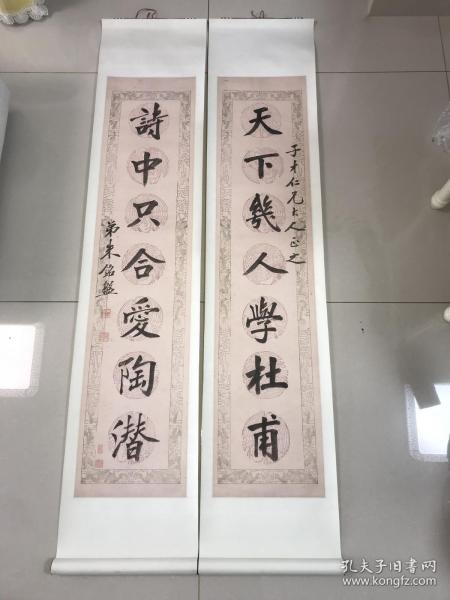 天下幾人學杜甫
子才仁兄大人正之
詩中只合愛陶潛
弟朱銘盤
孔夫子旧书网
www.kongfz.com